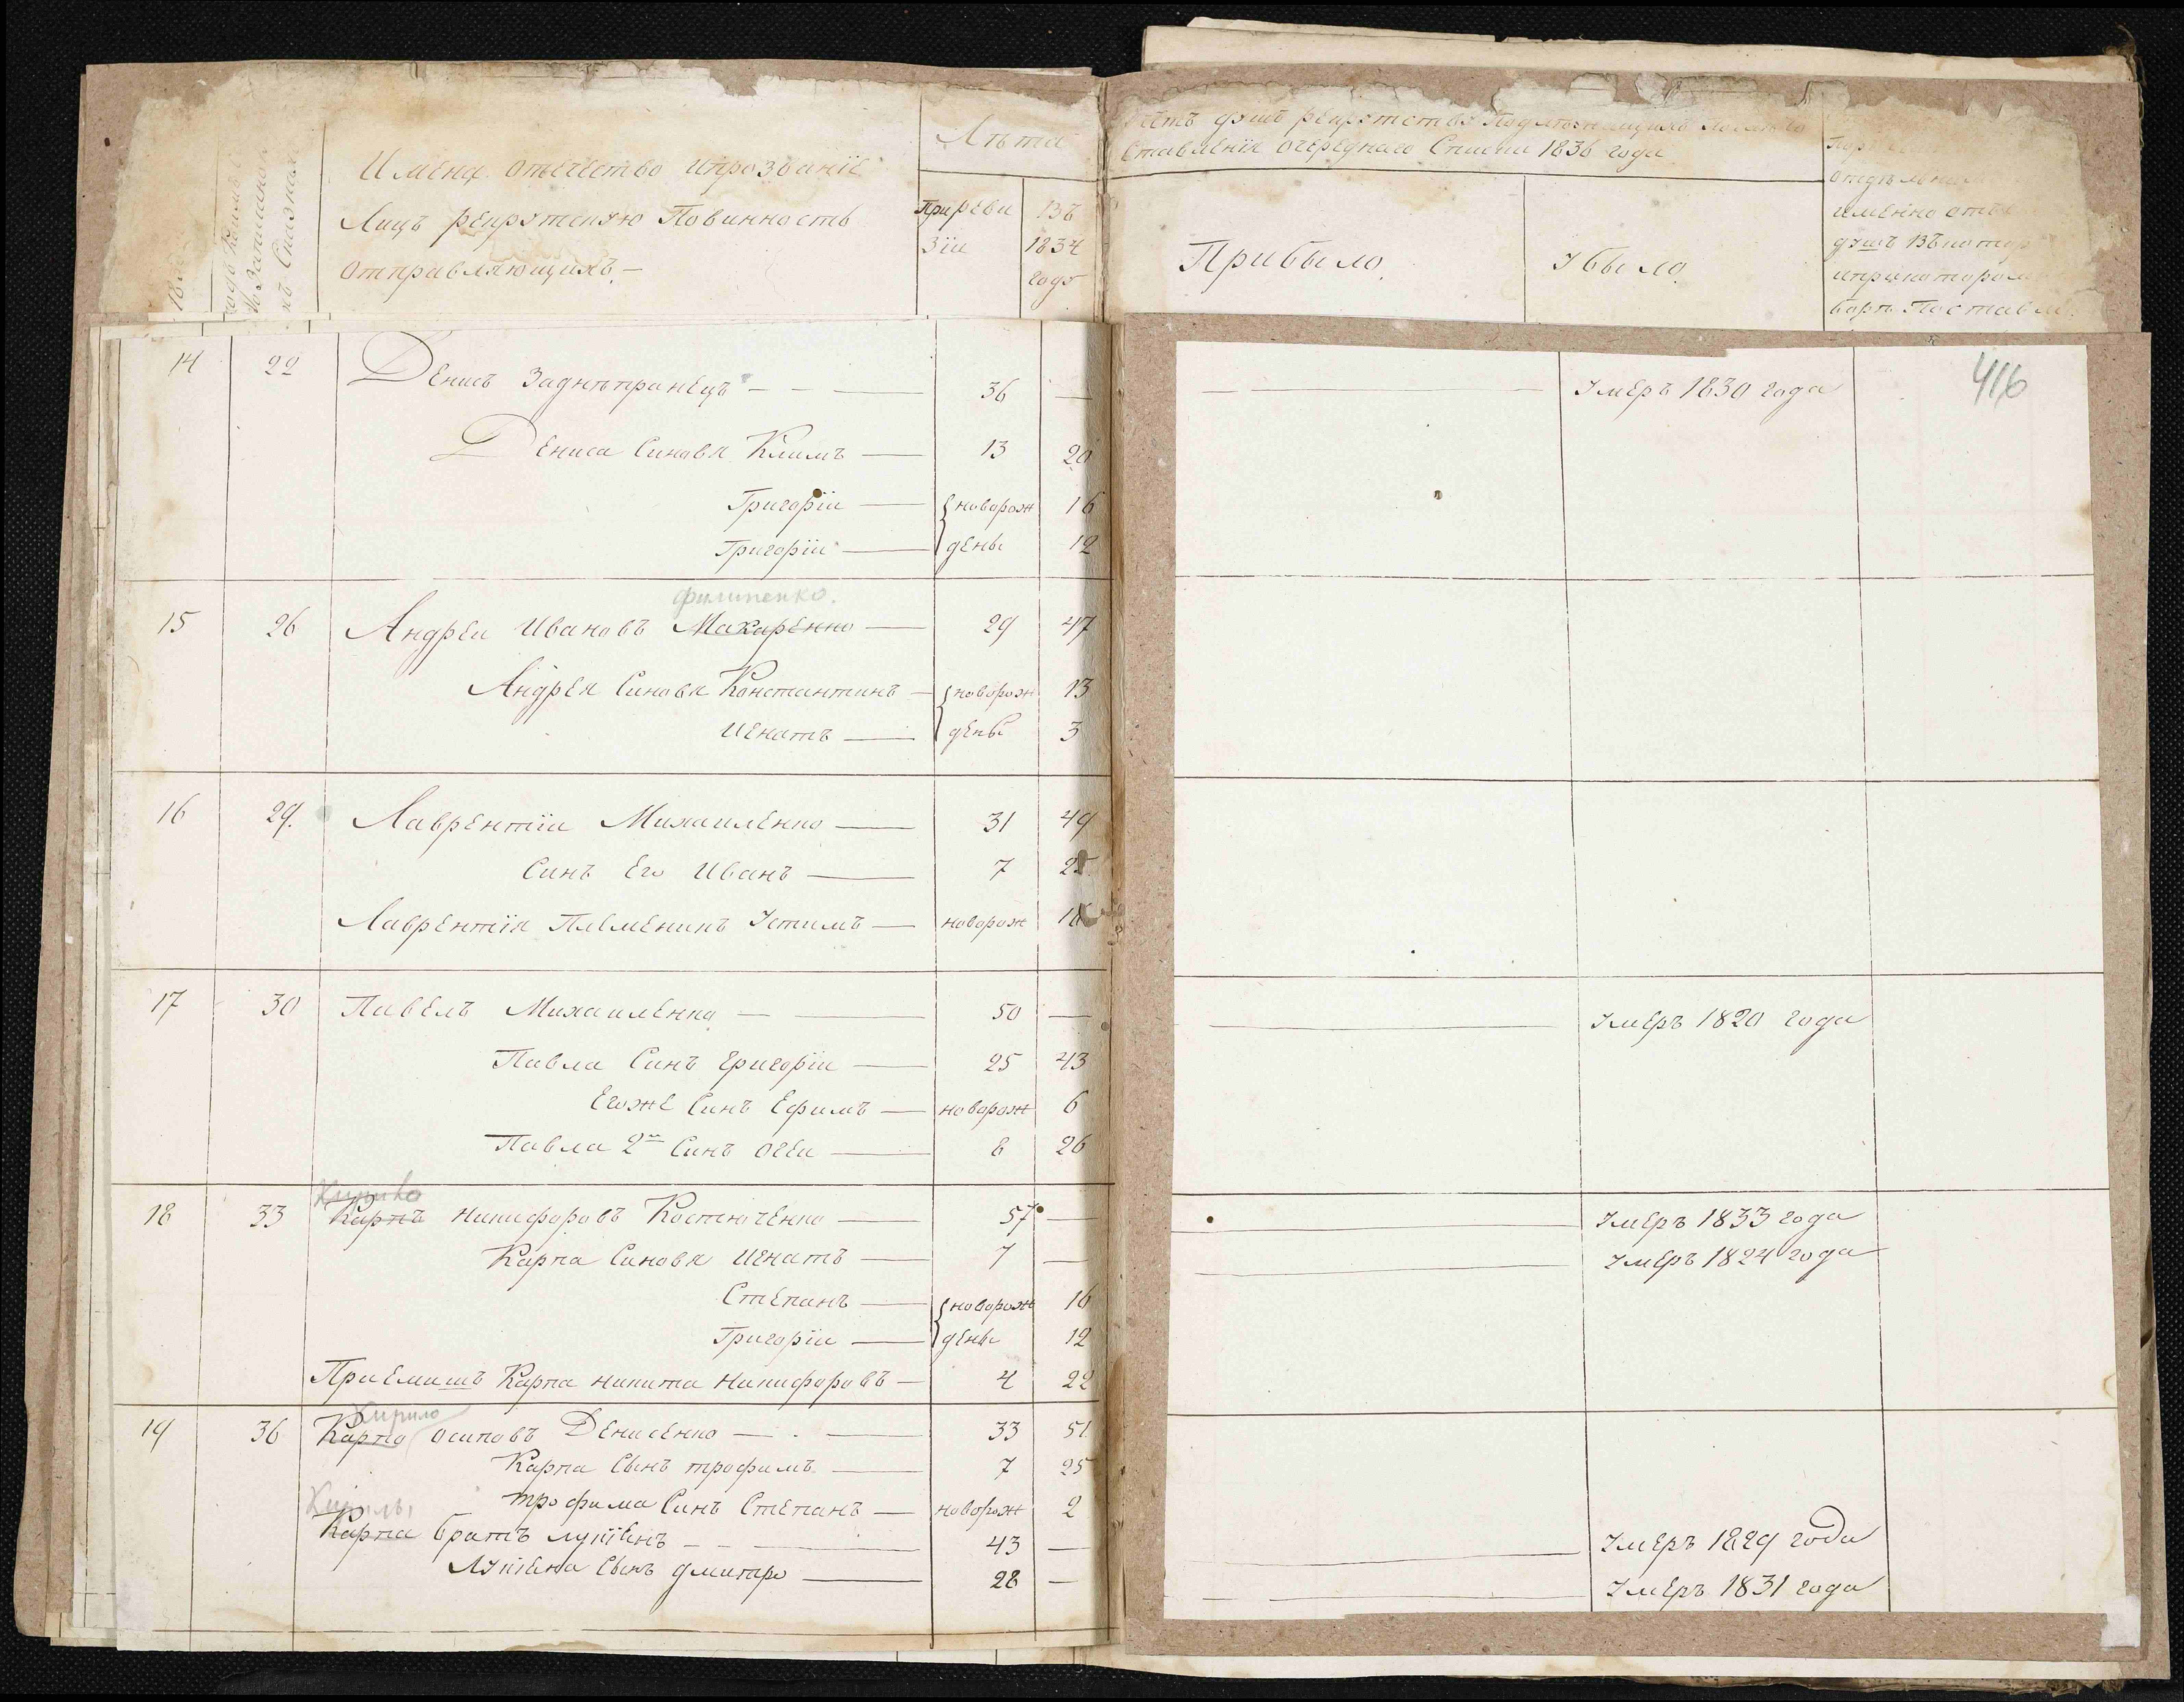 Имена отечество ипрозванїе
Лицъ рекрутскую Повинность
отправляющихъ.
подъ Коимъ
№ Записана
въ Сказкахъ
Лѣта
Приреви
зїи
Въ
1834
году
душъ рекрутству
Ставленїя очереднаго Списка 1836 года
Прибыло.
Убыло.
именно
душъ
Постав
416
14 22 Денисъ Заднѣпранецъ 36 — Умеръ 1830 года
Дениса Синовя Климъ 13 20
Григорїи новорож 16
Григорїи дены 12
филипенко.
15 26 Андреи Ивановъ Макаренко 29 47
Андрея Синовя Константинъ новорож 13
Игнатъ дены 3
16 29. Лаврентїи Михаиленко 31 49
Синъ Его Иванъ 7 25
Лаврентїя Племенникъ Устимъ новорож 18
17 30 Павелъ Михаиленко 50 — Умеръ 1820 года
Павла Синъ григорїи 25 43
Егоже Синъ Ефимъ новорож 6
Павла 2й Синъ 8 26
Кирило
18 33 Карпъ никифоровъ Костюченко 57 — Умеръ 1833 года
Карпа Синовя Игнатъ 7 — Умеръ 1824 года
Степанъ новорож 16
Григорїи дены 12
Приемишъ Карпа никита никифоровъ 4 22
Кирило
19 36 Карпо осиповъ Денисенко 33 51
Карпа Сынъ трофимъ 7 25
трофима Синъ Степанъ новорож 2
Кирилы
Карпа братъ лукїенъ 43 — Умеръ 1829 года
Лукїена Сынъ дмитро 28 — Умеръ 1831 года